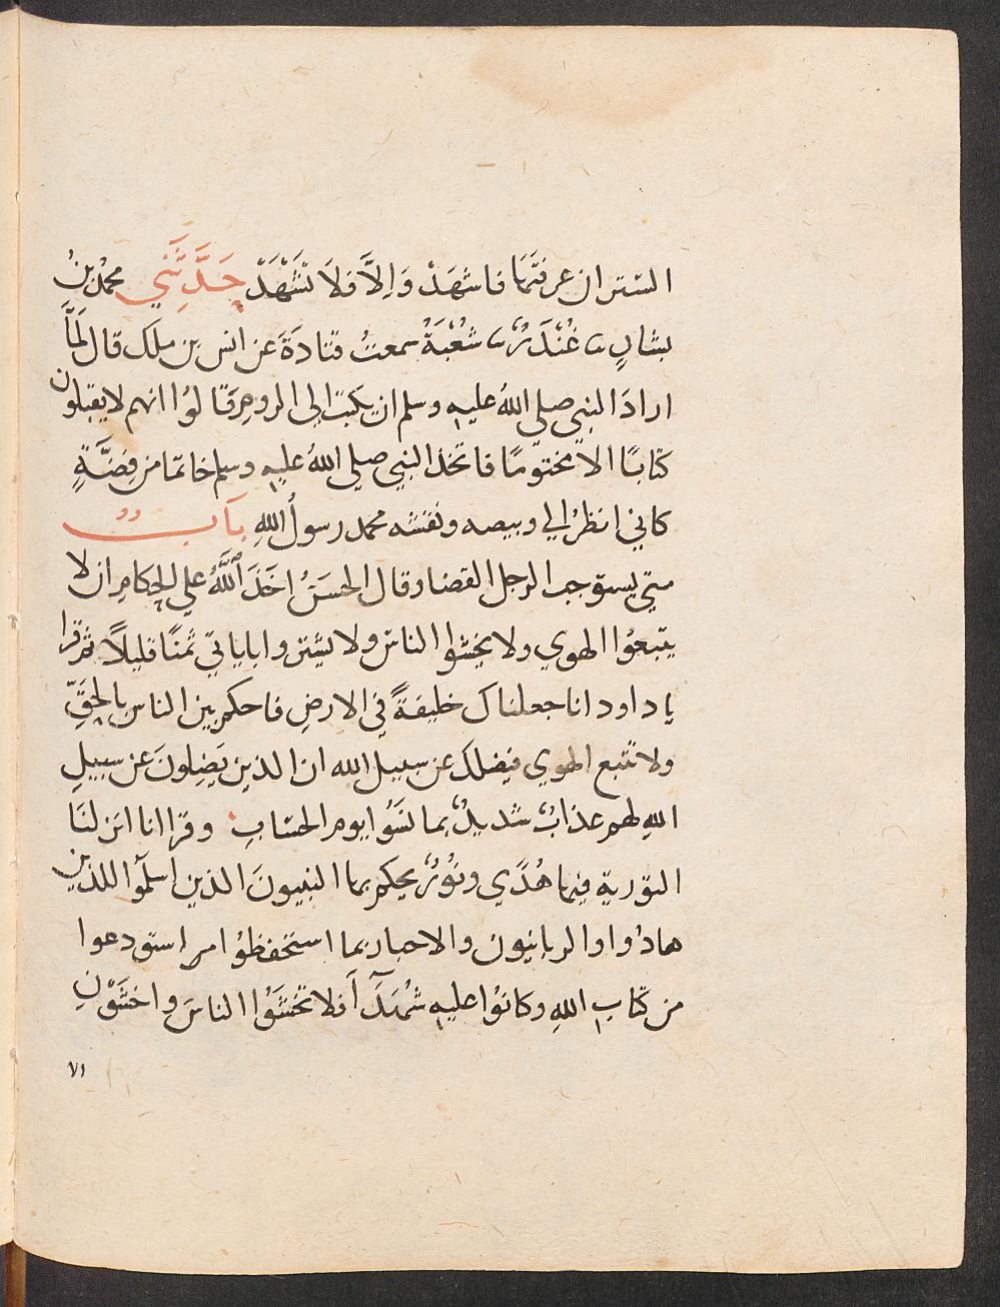 الستر ان عرفتَها فاشهَدْ وَاِلاَّ فلاَ تَشْهَدْ حَدَّثَني محمدُ بنُ
بشارٍ ثنا غُنْدَرٌ ثنا شعْبَةُ سمعتُ قتادَةَ عن انس بن ملك قال لَمَّا
ارادَ النبي صلي اللهُ عليه وسلم ان يكتب الي الرومِ قَالوُا انهم لا يقبلون
كتابًا الا مختومًا فاتخذ النبي صلي اللهُ عليه وسلم خاتما من فِضَّةٍ
كاني انظرُ الي وبيصه ونقشه محمد رسولُ اللهِ بابٌ
متي يستوجب الرجل القضا وقال الحسَنُ اخَذَ اللَّهُ علي الحكامِ ان لا
يتبعُوا الهوي ولا يخشوا الناسَ ولا يشتروا باياتي ثمنًا قليلاً ثم قرا
يا داود انا جعلناك خليفةً في الارضِ فاحكم بين الناس بالحقِّ
ولا تتبع الهوي فيضلك عن سبيل الله ان الذين يَضِلونَ عن سبيلِ
اللهِ لهم عذابٌ شديدٌ بما نسَوُا يوم الحسَابِ وقرا انا انزلنَا
التورية فيها هُدًي ونُورٌ يحكم بها النبيونَ الذين اسلمُوا للذين
هادُوا والربانيون والاحبار بما استحفظوُا استودعوا
من كتابِ اللهِ وكانوُا عليه شُهَدَآءَ فلا تخشَوُا الناسَ واخشَوْنِ
ولا